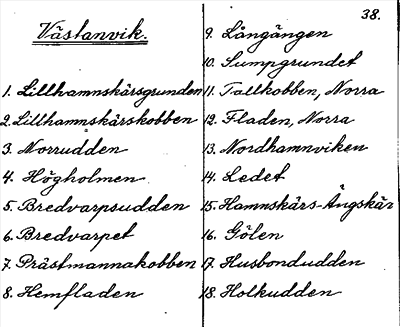 Västanvik.
1. Lillhamnskärsgrunden
2. Lillhamnskärskobben
3. Norrudden
4. Högholmen
5. Bredvarpsudden
6. Bredvarpet
7. Prästmannakobben
8. Hemfladen
38.
9. Långängen
10. Sumpgrundet
11. Tallkobben, Norra
12. Fladen, Norra
13. Nordhamnviken
14. Ledet
15. Hamnskärs-Ängskär
16. Gölen
17. Husbondudden
18. Holkudden